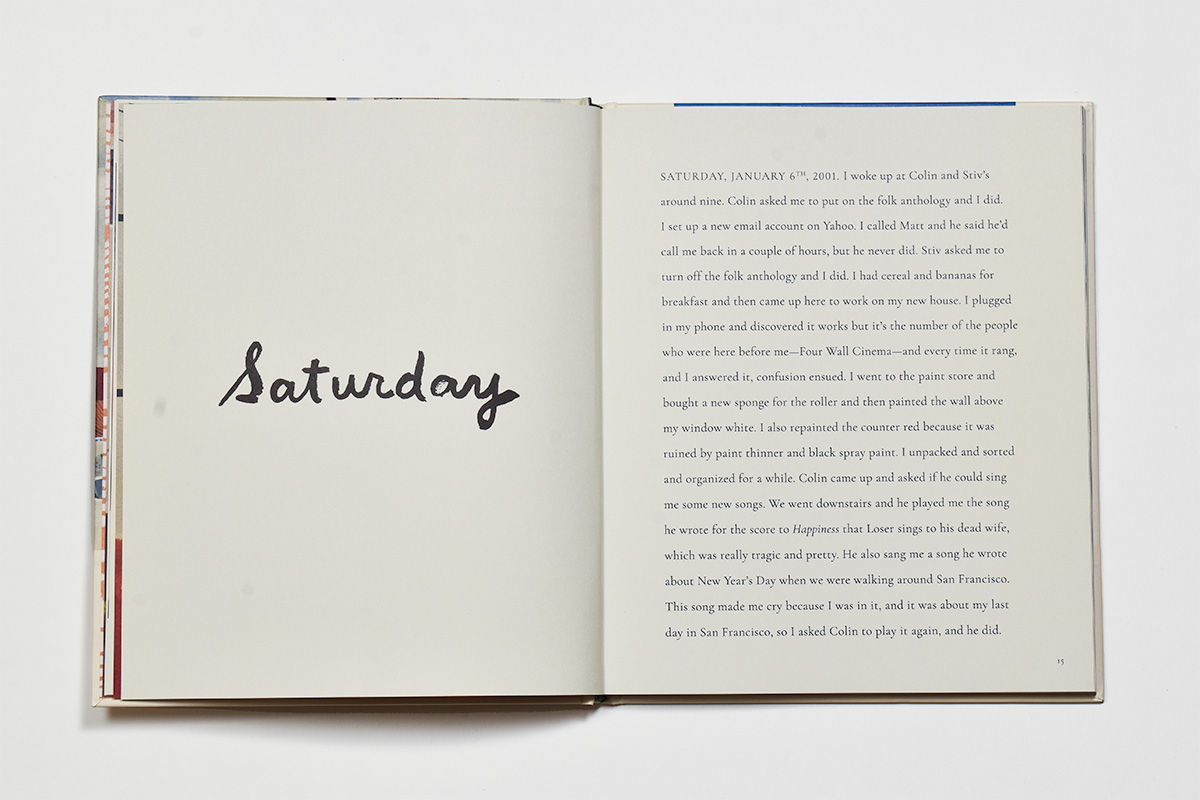 Saturday
SATURDAY, JANUARY 6TH, 2001. I woke up at Colin and Stiv's
around nine. Colin asked me to put on the folk anthology and I did.
I set up a new email account on Yahoo. I called Matt and he said he'd
call me back in a couple of hours, but he never did. Stiv asked me to
turn off the folk anthology and I did. I had cereal and bananas for
breakfast and then came up here to work on my new house. I plugged
in my phone and discovered it works but it's the number of the people
who were here before me—Four Wall Cinema—and every time it rang,
and I answered it, confusion ensued. I went to the paint store and
bought a new sponge for the roller and then painted the wall above
my window white. I also repainted the counter red because it was
ruined by paint thinner and black spray paint. I unpacked and sorted
and organized for a while. Colin came up and asked if he could sing
me some new songs. We went downstairs and he played me the song
he wrote for the score to Happiness that Loser sings to his dead wife,
which was really tragic and pretty. He also sang me a song he wrote
about New Year's Day when we were walking around San Francisco.
This song made me cry because I was in it, and it was about my last
day in San Francisco, so I asked Colin to play it again, and he did.
15